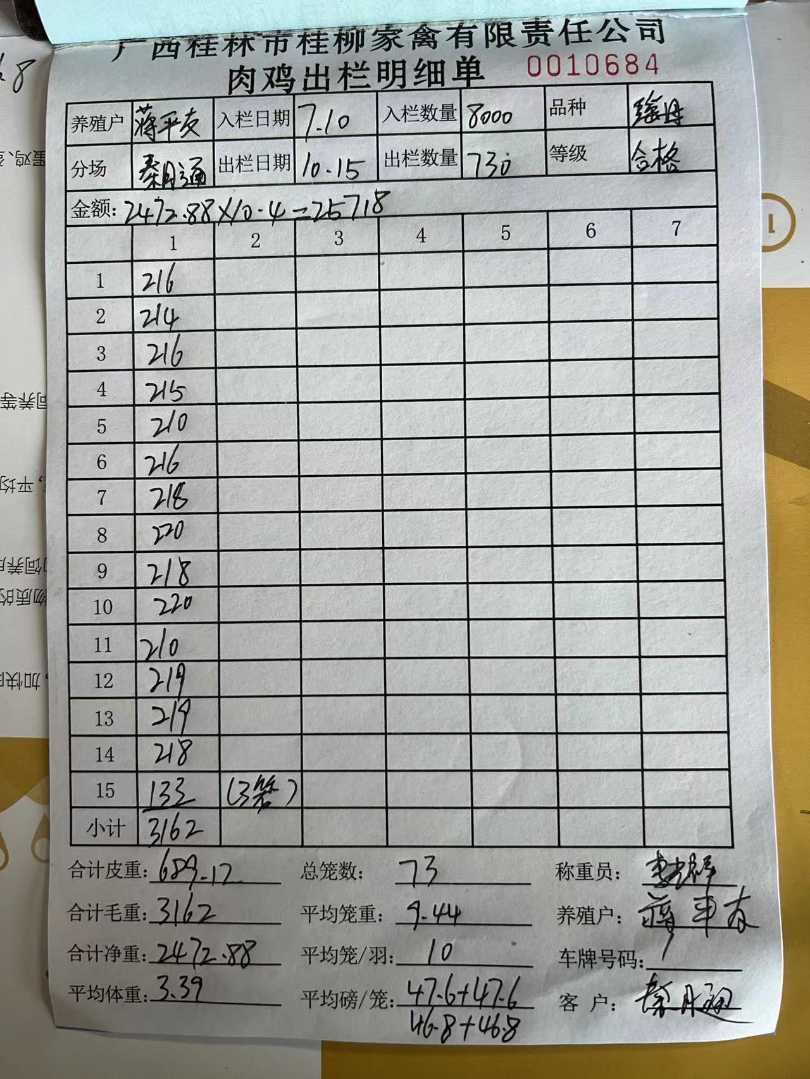 广西桂林市桂柳家禽有限责任公司
肉鸡出栏明细单 0010684
养殖户 蒋平友 入栏日期 7.10 入栏数量 8000 品种
分场 秦月通 出栏日期 10.15 出栏数量 730 等级 合格
金额: 2472.88×10.4=25718
1 2 3 4 5 6 7
1 216
2 214
3 216
4 215
5 210
6 216
7 218
8 220
9 218
10 220
11 210
12 219
13 219
14 218
15 133 (3笼)
小计 3162
合计皮重: 689.12 总笼数: 73 称重员:
合计毛重: 3162 平均笼重: 9.44 养殖户: 蒋平友
合计净重: 2472.88 平均笼/羽: 10 车牌号码:
平均体重: 3.39 平均磅/笼: 47.6+47.6 客户:
46.8+46.8